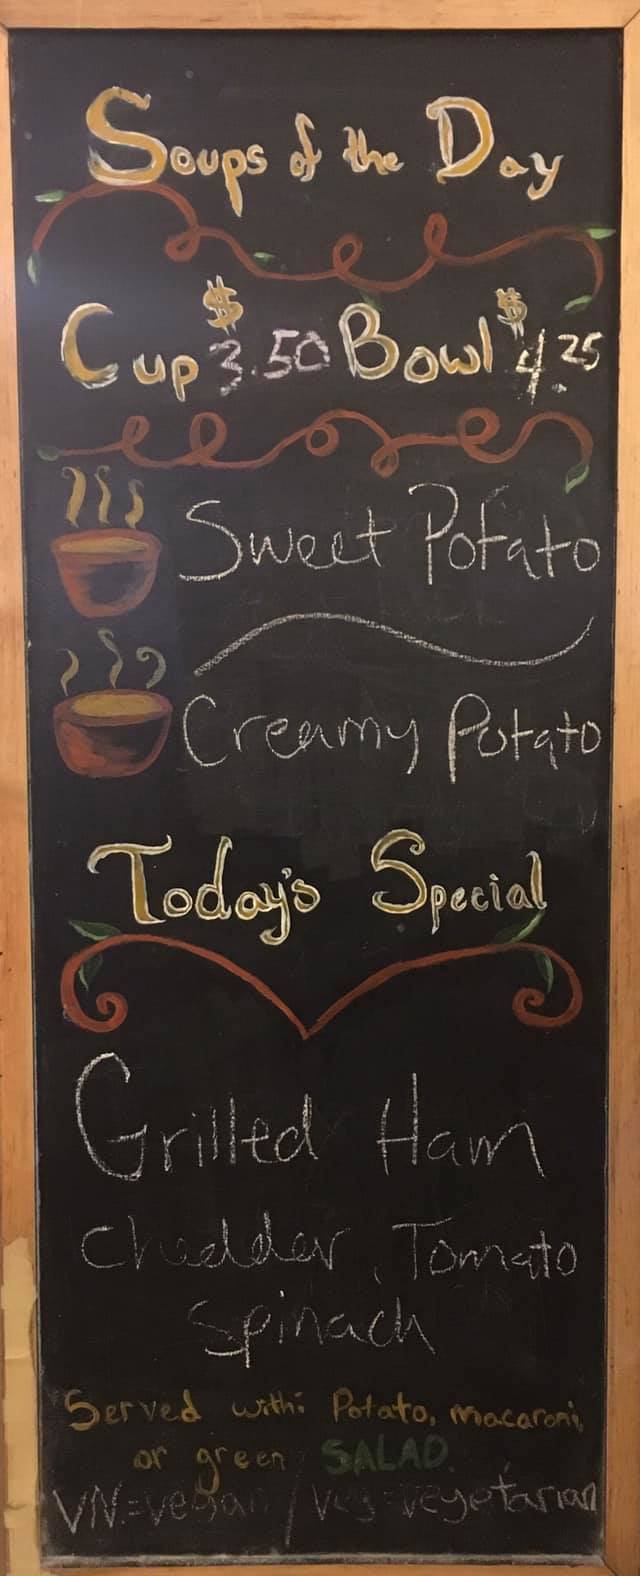 Soups of the Day
Cup $3.50 Bowl $4.25
Sweet Potato
Creamy Potato
Today's Special
Grilled Ham
Cheddar, Tomato
Spinach
Served with: Potato, macaroni,
or green SALAD.
VN.=vegan / Veg=vegetarian